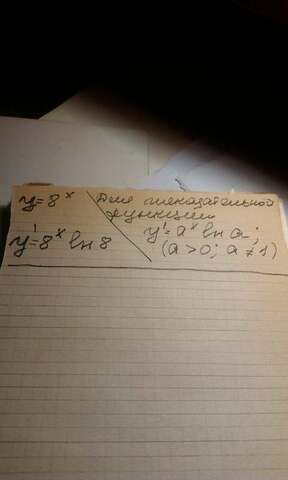 y = 8ˣ
y' = 8ˣ ln 8
Для показательной
функции
y' = aˣ ln a;
(a > 0; a ≠ 1)